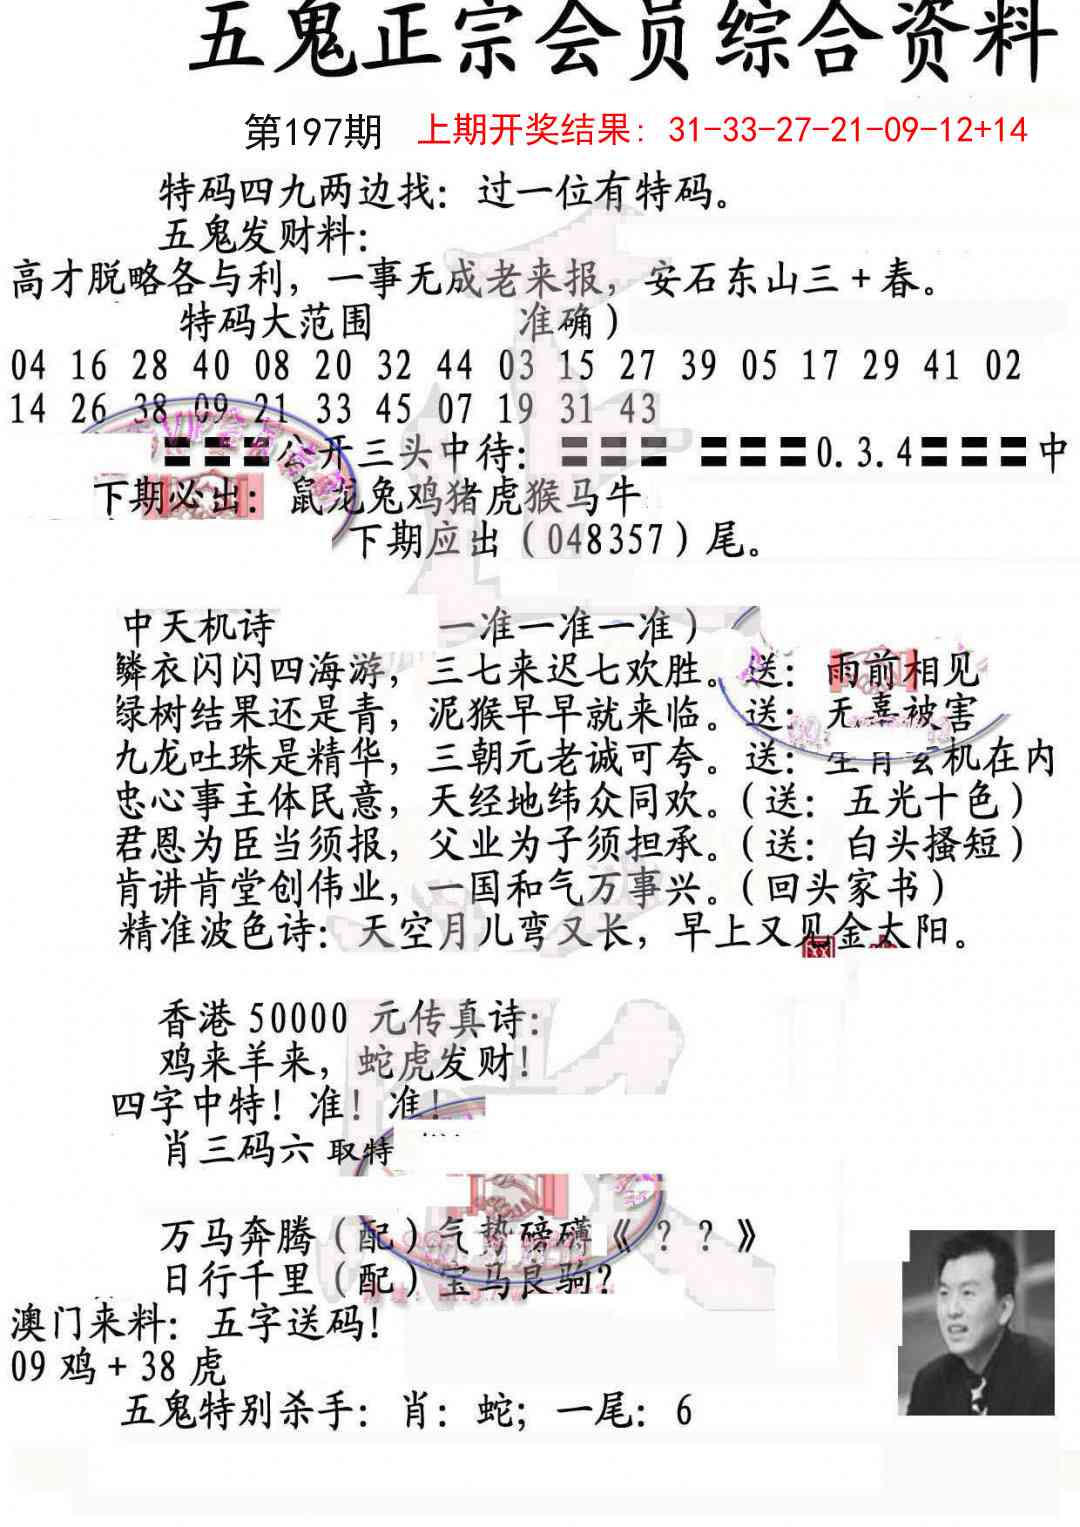 五鬼正宗会员综合资料
第197期 上期开奖结果：31-33-27-21-09-12+14
特码四九两边找：过一位有特码。
五鬼发财料：
高才脱略各与利，一事无成老来报，安石东山三+春。
特码大范围 准确）
04 16 28 40 08 20 32 44 03 15 27 39 05 17 29 41 02
14 26 38 09 21 33 45 07 19 31 43
〓〓〓公开三头中待：〓〓〓 〓〓〓0.3.4〓〓〓中
下期必出：鼠龙兔鸡猪虎猴马牛
下期应出（048357）尾。
中天机诗 一准一准一准）
鳞衣闪闪四海游，三七来迟七欢胜。送：雨前相见
绿树结果还是青，泥猴早早就来临。送：无辜被害
九龙吐珠是精华，三朝元老诚可夸。送：生肖玄机在内
忠心事主体民意，天经地纬众同欢。（送：五光十色）
君恩为臣当须报，父业为子须担承。（送：白头搔短）
肯讲肯堂创伟业，一国和气万事兴。（回头家书）
精准波色诗：天空月儿弯又长，早上又见金太阳。
香港50000 元传真诗：
鸡来羊来，蛇虎发财！
四字中特！准！准！
肖三码六 取特
万马奔腾（配）气势磅礴《？？》
日行千里（配）宝马良驹？
澳门来料：五字送码！
09 鸡+38 虎
五鬼特别杀手：肖：蛇；一尾：6